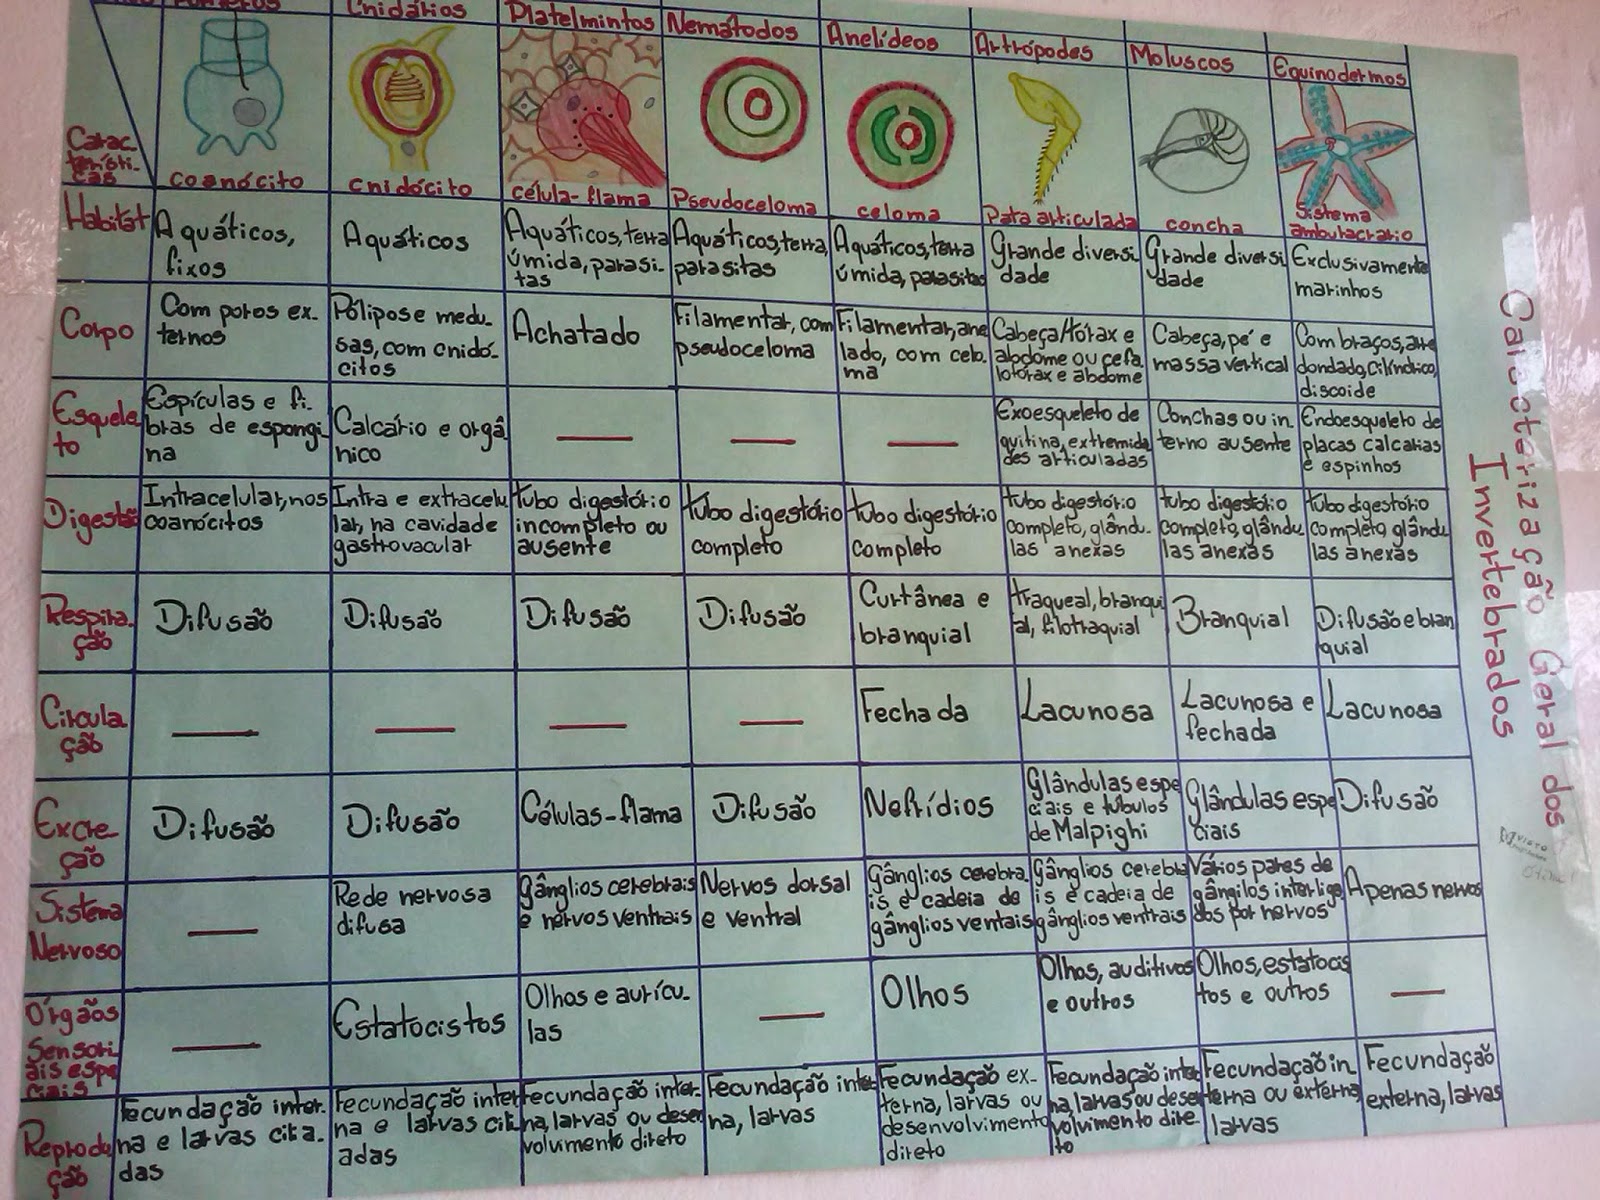 Cnidários
Platelmintos
Nemátodos
Anelídeos
Artrópodes
Moluscos
Equinodermos
Carac-
terísti-
cas
coanócito
cnidócito
célula-flama
Pseudoceloma
celoma
Pata articulada
concha
Sistema
ambulacrario
Habitat
Aquáticos,
fixos
Aquáticos
Aquáticos, terra
úmida, parasi-
tas
Aquáticos, terra,
parasitas
Aquáticos, terra
úmida, parasitas
Grande diversi
dade
Grande diversi
dade
Exclusivamente
marinhos
Corpo
Com poros ex-
ternos
Pólipos e medu-
sas, com cnidó-
citos
Achatado
Filamentar, com
pseudoceloma
Filamentar, ane
lado, com celo-
ma
Cabeça/tórax e
abdome ou cefa
lotórax e abdome
Cabeça, pé e
massa vertical
Com braços, arre
dondado, cilíndrico,
discoide
Esquele
to
Espículas e fi-
bras de espongi
na
Calcário e orgâ
nico
Exoesqueleto de
quitina, extremida
des articuladas
Conchas ou in
terno ausente
Endoesqueleto de
placas calcarias
e espinhos
Digestão
Intracelular, nos
coanócitos
Intra e extracelu
lar, na cavidade
gastrovacular
tubo digestório
incompleto ou
ausente
tubo digestório
completo
tubo digestório
completo
tubo digestório
completo, glându-
las anexas
tubo digestório
completo, glându
las anexas
tubo digestório
completo, glându
las anexas
Respira-
ção
Difusão
Difusão
Difusão
Difusão
Curtânea e
branquial
traqueal, branqui
al, filotraquial
Branquial
Difusão e bran
quial
Circula
ção
Fechada
Lacunosa
Lacunosa e
fechada
Lacunosa
Excre-
ção
Difusão
Difusão
Células-flama
Difusão
Nefrídios
Glândulas espe
ciais e túbulos
de Malpighi
Glândulas espe
ciais
Difusão
Sistema
Nervoso
Rede nervosa
difusa
Gânglios cerebrais
e nervos ventrais
Nervos dorsal
e ventral
Gânglios cerebra-
is e cadeia de
gânglios ventais
Gânglios cerebra
is e cadeia de
gânglios ventrais
Vários pares de
gângilos interliga
dos por nervos
Apenas nervos
Órgãos
Sensori-
ais espe
ciais
Estatocistos
Olhos e aurícu-
las
Olhos
Olhos, auditivos
e outros
Olhos, estatocis
tos e outros
Reprodu
ção
Fecundação inter-
na e larvas cita-
das
Fecundação inter
na e larvas cili-
adas
Fecundação inter-
na, larvas ou desen
volvimento direto
Fecundação inter
na, larvas
Fecundação ex-
terna, larvas ou
desenvolvimento
direto
Fecundação inter
na, larvas ou desen
volvimento dire-
to
Fecundação in
terna ou externa
larvas
Fecundação
externa, larvas
Caracterização Geral dos
Invertebrados